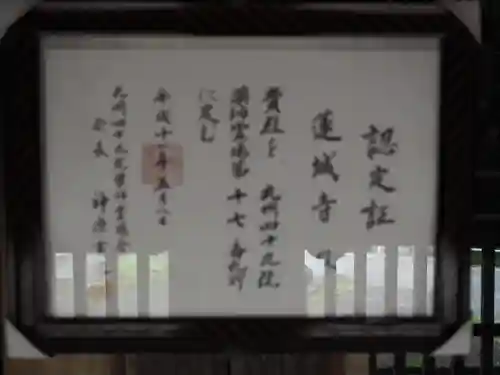 認定証
蓮城寺殿
貴殿を九州四十九院
薬師霊場第十七番札所
に定む
平成十一年五月八日
九州四十九院薬師霊場会
会長